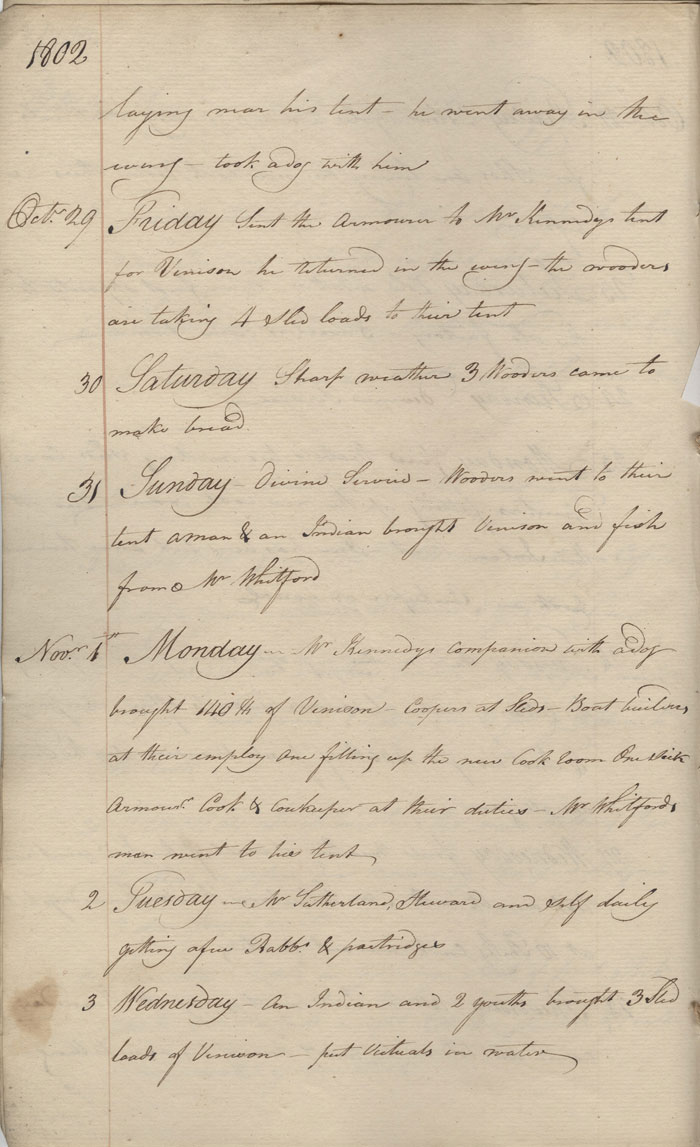 1802
laying near his tent – he went away in the
eveng – took a dog with him
Octr. 29 Friday Sent the Armourer to Mr Kennedys tent
for Venison he returned in the eveng – the wooders
are taking 4 Sled loads to their tent
30 Saturday Sharp weather 3 Wooders came to
make bread.
31 Sunday – Divine Service – Wooders went to their
tent a man & an Indian brought Venison and fish
from Mr Whitford
Novr. 1st Monday – Mr Kennedys companion with a dog
brought 140 lb of Venison – Coopers at Sleds – Boat builders
at their employ one fitting up the new Cook room One sick
Armourr. Cook & Cowkeeper at their duties – Mr Whitfords
man went to his tent
2 Tuesday – Mr Sutherland, Steward and self daily
getting a few Rabbs. & partridges
3 Wednesday – An Indian and 2 youths brought 3 Sled
loads of Venison – put Victuals in water